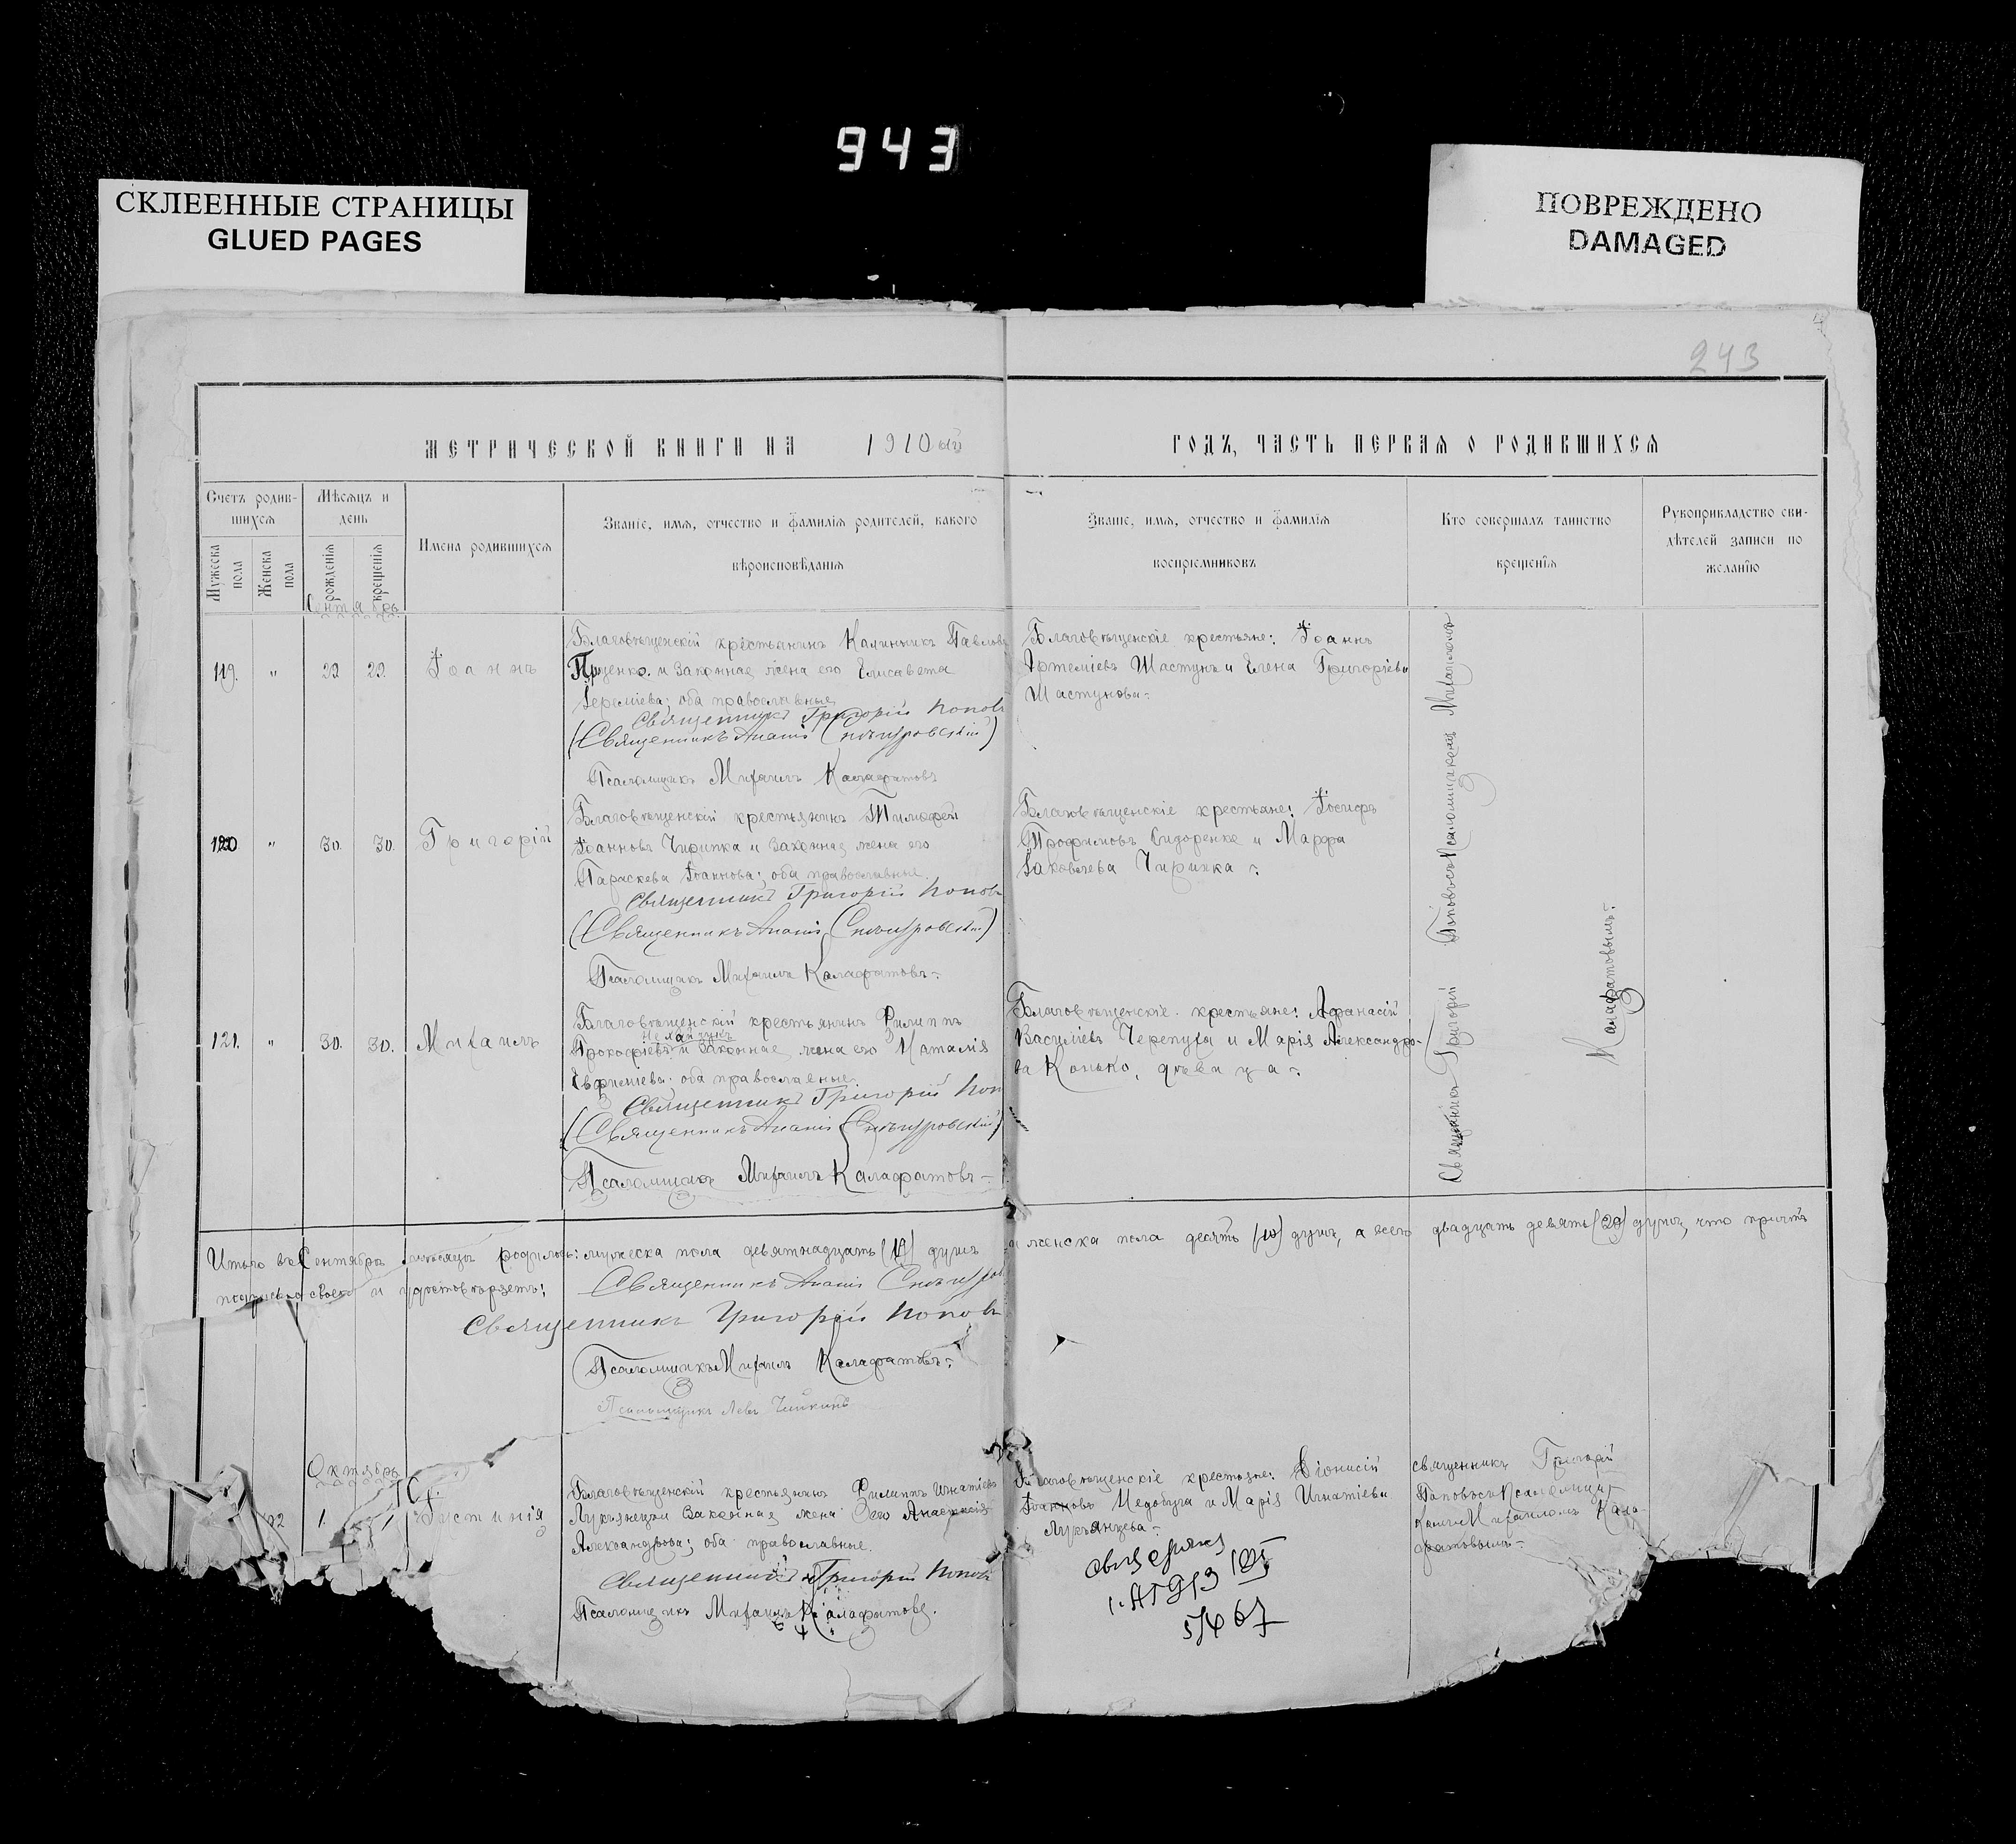 943
СКЛЕЕННЫЕ СТРАНИЦЫ
GLUED PAGES
ПОВРЕЖДЕНО
DAMAGED
243
МЕТРИЧЕСКОЙ КНИГИ НА 1910 ый
ГОДЪ, ЧАСТЬ ПЕРВАЯ О РОДИВШИХСЯ
Счетъ родив-
шихся
Мѣсяцъ и
день
Мужеска пола
Женска пола
рожденія
крещенія
Имена родившихся
Званіе, имя, отчество и фамилія родителей, какого
вѣроисповѣданія
Званіе, имя, отчество и фамилія
воспріемниковъ
Кто совершалъ таинство
крещенія
Рукоприкладство сви-
дѣтелей записи по
желанію
Сентябрь
119. " 29. 29. Іоаннъ
Благовѣщенскій крестьянинъ Калинникъ Павловъ
Проценко и законная жена его Елисавета
Іереміева; оба православные
Священникъ Григорій Поповъ
(Священникъ Ананій Снѣгуровскій)
Псаломщикъ Михаилъ Калафатовъ
Благовѣщенскіе крестьяне: Іоаннъ
Артеміевъ Шастунъ и Елена Григоріева
Шастунова
120. " 30. 30. Григорій
Благовѣщенскій крестьянинъ Тимофей
Іоанновъ Чиринка и законная жена его
Параскева Іоаннова; оба православные.
Священникъ Григорій Поповъ
(Священникъ Ананій Снѣгуровскій)
Псаломщикъ Михаилъ Калафатовъ
Благовѣщенскіе крестьяне: Іосифъ
Трофимовъ Сидоренко и Марфа
Іаковлева Чиринка
121. " 30. 30. Михаилъ
Благовѣщенскій крестьянинъ Филиппъ
Прокофіевъ и законная жена его Наталія
Евфиміева; оба православные.
Священникъ Григорій Поп
(Священникъ Ананій Снѣгуровскій)
Псаломщикъ Михаилъ Калафатовъ
Благовѣщенскіе крестьяне: Афанасій
Василіевъ Черепуха и Марія Александро-
ва Конько, дѣвица
Священникъ Григорій Поповъ съ Псаломщикомъ Михаиломъ
Калафатовымъ
Итого въ Сентябрѣ мѣсяцѣ родилось: мужеска пола девятнадцать (19) душъ и женска пола десять (10) душъ, а всего двадцать девять (29) душъ, что причтъ
подписью своею и удостовѣряетъ:
Священникъ Ананій Снѣгуров
Священникъ Григорій Поповъ
Псаломщикъ Михаилъ Калафатовъ
Псаломщикъ Левъ
Октябрь
22 1. 1 Іустинія
Благовѣщенскій крестьянинъ Филиппъ Игнатіевъ
Лукьянецъ и законная жена его Анастасія
Александрова; оба православные.
Священникъ Григорій Поповъ
Псаломщикъ Михаилъ Калафатовъ.
Благовѣщенскіе крестьяне: Діонисій
Іоанновъ Недобуга и Марія Игнатіева
Лукьянцева
Священникъ Григорій
Поповъ съ Псаломщи-
комъ Михаиломъ Кала-
фатовымъ